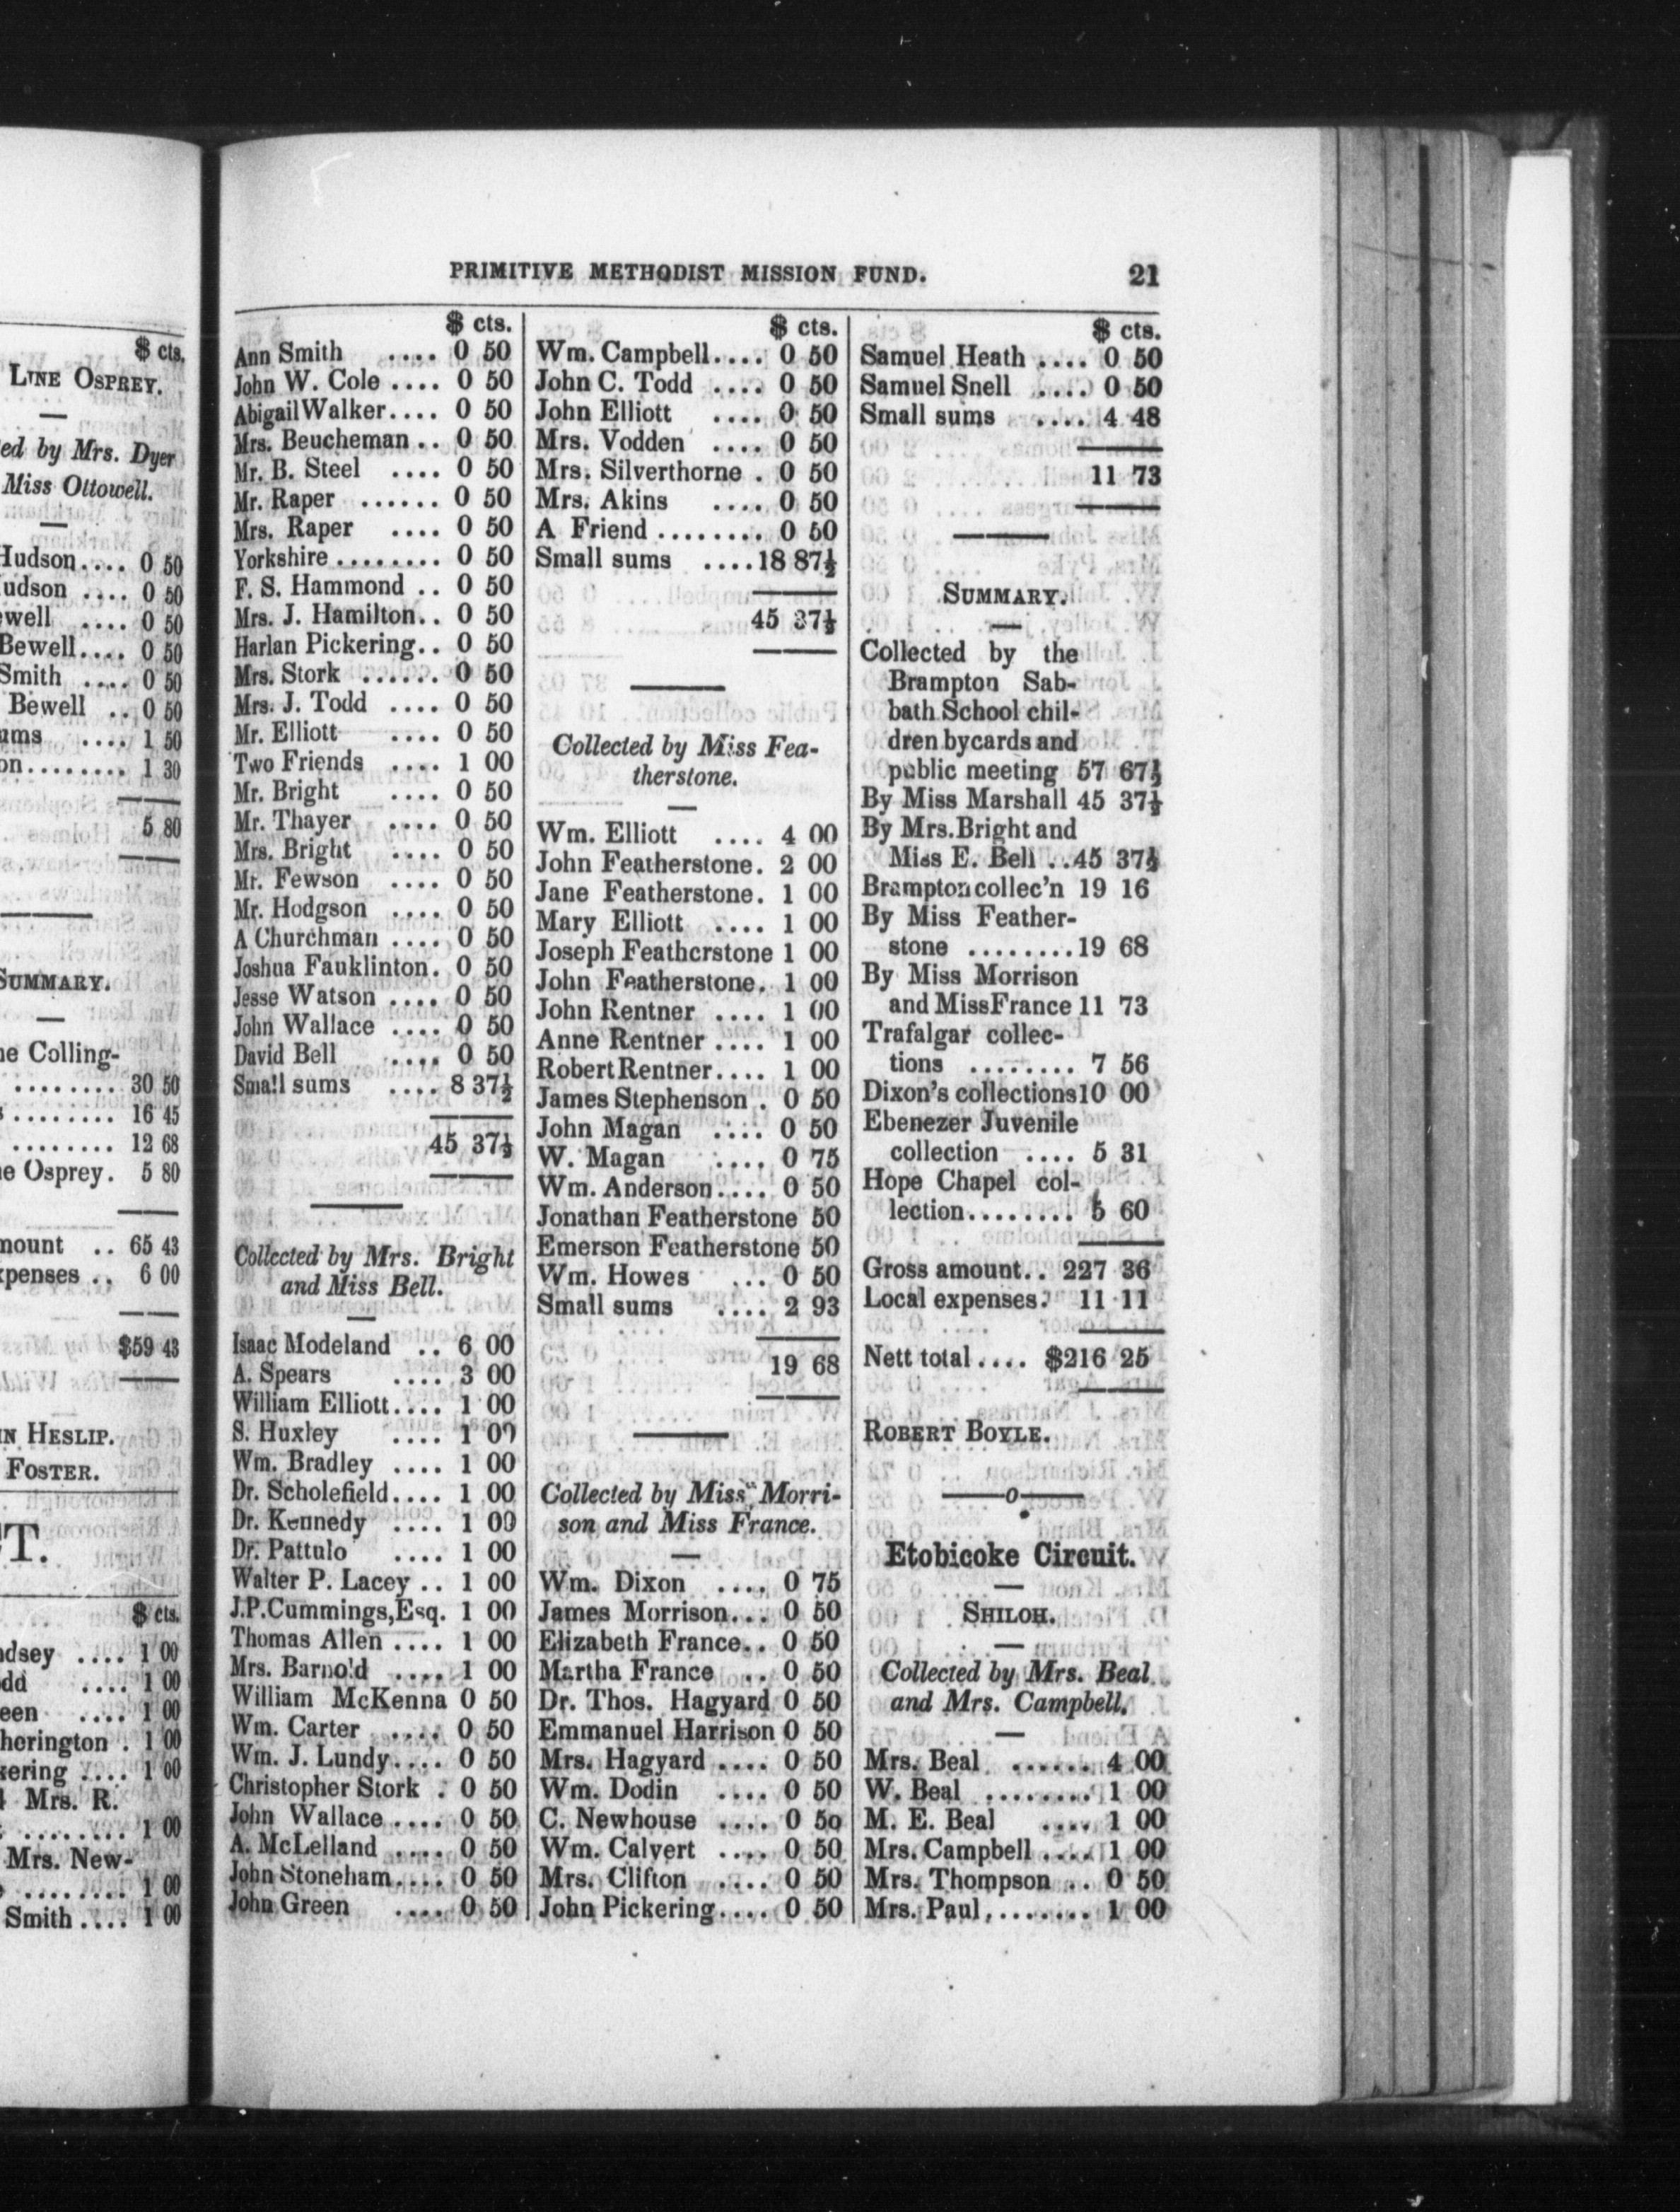 $ cts.
LINE OSPREY.
ed by Mrs. Dyer
Miss Ottowell.
Hudson.... 0 50
udson .... 0 50
well .... 0 50
Bewell.... 0 50
Smith .... 0 50
Bewell .. 0 50
ums .... 1 50
on........ 1 30
5 80
SUMMARY.
ne Colling-
........ 30 50
s ........ 16 45
........ 12 68
ne Osprey. 5 80
mount .. 65 43
xpenses .. 6 00
$59 43
IN HESLIP.
FOSTER.
T.
$ cts.
ndsey .... 1 00
odd .... 1 00
een .... 1 00
herington . 1 00
kering .... 1 00
Mrs. R.
........ 1 00
Mrs. New-
........ 1 00
Smith .... 1 00
PRIMITIVE METHODIST MISSION FUND. 21
$ cts.
Ann Smith .... 0 50
John W. Cole .... 0 50
Abigail Walker.... 0 50
Mrs. Beucheman .. 0 50
Mr. B. Steel .... 0 50
Mr. Raper ...... 0 50
Mrs. Raper .... 0 50
Yorkshire ........ 0 50
F. S. Hammond .. 0 50
Mrs. J. Hamilton.. 0 50
Harlan Pickering.. 0 50
Mrs. Stork ...... 0 50
Mrs. J. Todd .... 0 50
Mr. Elliott .... 0 50
Two Friends .... 1 00
Mr. Bright .... 0 50
Mr. Thayer .... 0 50
Mrs. Bright .... 0 50
Mr. Fewson .... 0 50
Mr. Hodgson .... 0 50
A Churchman .... 0 50
Joshua Fauklinton. 0 50
Jesse Watson .... 0 50
John Wallace .... 0 50
David Bell .... 0 50
Small sums .... 8 37½
45 37½
Collected by Mrs. Bright
and Miss Bell.
Isaac Modeland .. 6 00
A. Spears .... 3 00
William Elliott.... 1 00
S. Huxley .... 1 00
Wm. Bradley .... 1 00
Dr. Scholefield.... 1 00
Dr. Kennedy .... 1 00
Dr. Pattulo .... 1 00
Walter P. Lacey .. 1 00
J.P.Cummings,Esq. 1 00
Thomas Allen .... 1 00
Mrs. Barnold .... 1 00
William McKenna 0 50
Wm. Carter .... 0 50
Wm. J. Lundy.... 0 50
Christopher Stork . 0 50
John Wallace .... 0 50
A. McLelland .... 0 50
John Stoneham.... 0 50
John Green .... 0 50
$ cts.
Wm. Campbell.... 0 50
John C. Todd .... 0 50
John Elliott .... 0 50
Mrs. Vodden .... 0 50
Mrs. Silverthorne . 0 50
Mrs. Akins .... 0 50
A Friend ........ 0 50
Small sums ....18 87½
45 37½
Collected by Miss Fea-
therstone.
Wm. Elliott .... 4 00
John Featherstone. 2 00
Jane Featherstone. 1 00
Mary Elliott .... 1 00
Joseph Featherstone 1 00
John Featherstone. 1 00
John Rentner .... 1 00
Anne Rentner .... 1 00
Robert Rentner.... 1 00
James Stephenson . 0 50
John Magan .... 0 50
W. Magan .... 0 75
Wm. Anderson.... 0 50
Jonathan Featherstone 50
Emerson Featherstone 50
Wm. Howes ... 0 50
Small sums .... 2 93
19 68
Collected by Miss Morri-
son and Miss France.
Wm. Dixon .... 0 75
James Morrison... 0 50
Elizabeth France.. 0 50
Martha France .. 0 50
Dr. Thos. Hagyard 0 50
Emmanuel Harrison 0 50
Mrs. Hagyard .... 0 50
Wm. Dodin .... 0 50
C. Newhouse .... 0 50
Wm. Calvert .... 0 50
Mrs. Clifton .... 0 50
John Pickering.... 0 50
$ cts.
Samuel Heath .... 0 50
Samuel Snell .... 0 50
Small sums .... 4 48
11 73
SUMMARY.
Collected by the
Brampton Sab-
bath School chil-
dren by cards and
public meeting 57 67½
By Miss Marshall 45 37½
By Mrs.Bright and
Miss E. Bell ..45 37½
Brampton collec'n 19 16
By Miss Feather-
stone ........19 68
By Miss Morrison
and Miss France 11 73
Trafalgar collec-
tions ........ 7 56
Dixon's collections10 00
Ebenezer Juvenile
collection .... 5 31
Hope Chapel col-
lection........ 5 60
Gross amount.. 227 36
Local expenses. 11 11
Nett total.... $216 25
ROBERT BOYLE.
Etobicoke Circuit.
SHILOH.
Collected by Mrs. Beal
and Mrs. Campbell.
Mrs. Beal ...... 4 00
W. Beal ........ 1 00
M. E. Beal .... 1 00
Mrs. Campbell .... 1 00
Mrs. Thompson .. 0 50
Mrs. Paul........ 1 00